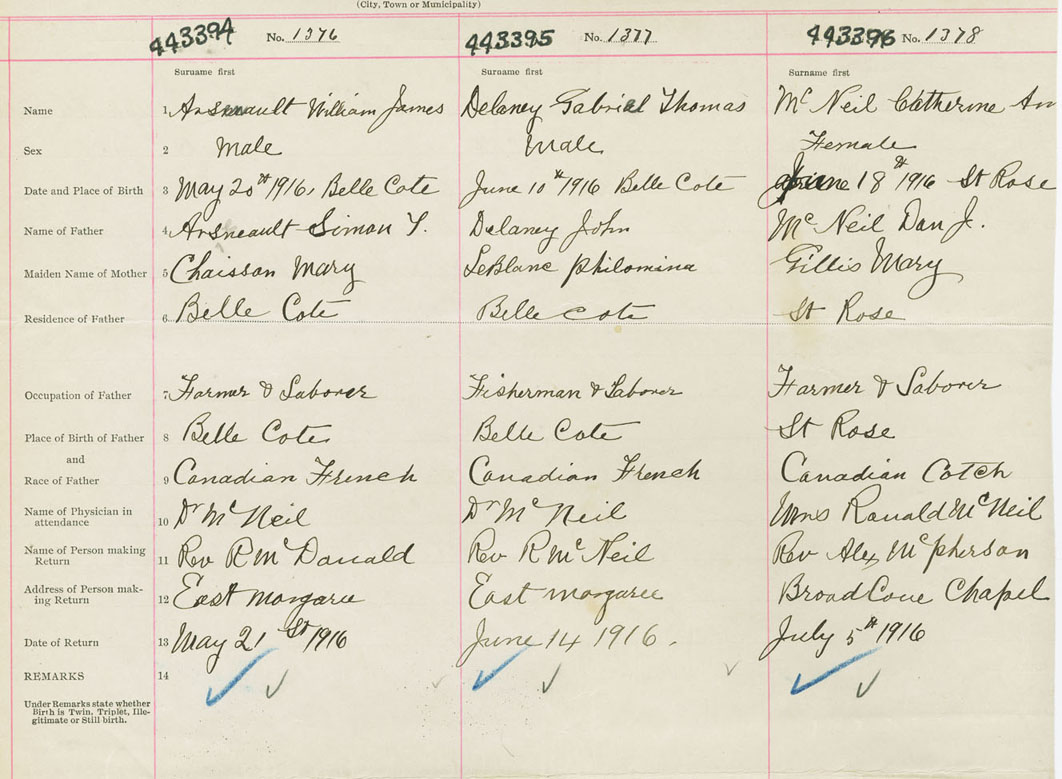 (City, Town or Municipality)
443394 No. 1376 443395 No. 1377 443396 No. 1378
Surname first Surname first Surname first
Name 1 Arseneault William James Delaney Gabriel Thomas Mc Neil Catherine An
Sex 2 Male Male Female
Date and Place of Birth 3 May 20th 1916, Belle Cote June 10th 1916 Belle Cote June 18th 1916 St Rose
Name of Father 4 Arsneault Simon Y. Delaney John Mc Neil Dan J.
Maiden Name of Mother 5 Chaisson Mary LeBlanc Philomina Gillis Mary
Residence of Father 6 Belle Cote Belle Cote St Rose
Occupation of Father 7 Farmer & Laborer Fisherman & Laborer Farmer & Laborer
Place of Birth of Father 8 Belle Cote Belle Cote St Rose
and
Race of Father 9 Canadian French Canadian French Canadian Cotch
Name of Physician in
attendance 10 Dr Mc Neil Dr Mc Neil Mrs Ranald Mc Neil
Name of Person making
Return 11 Rev R Mc Donald Rev R Mc Neil Rev Alex Mc pherson
Address of Person mak-
ing Return 12 East margaree East margaree Broad Cove Chapel
Date of Return 13 May 21st 1916 June 14 1916. July 5th 1916
REMARKS 14
Under Remarks state whether
Birth is Twin, Triplet, Ille-
gitimate or Still birth.